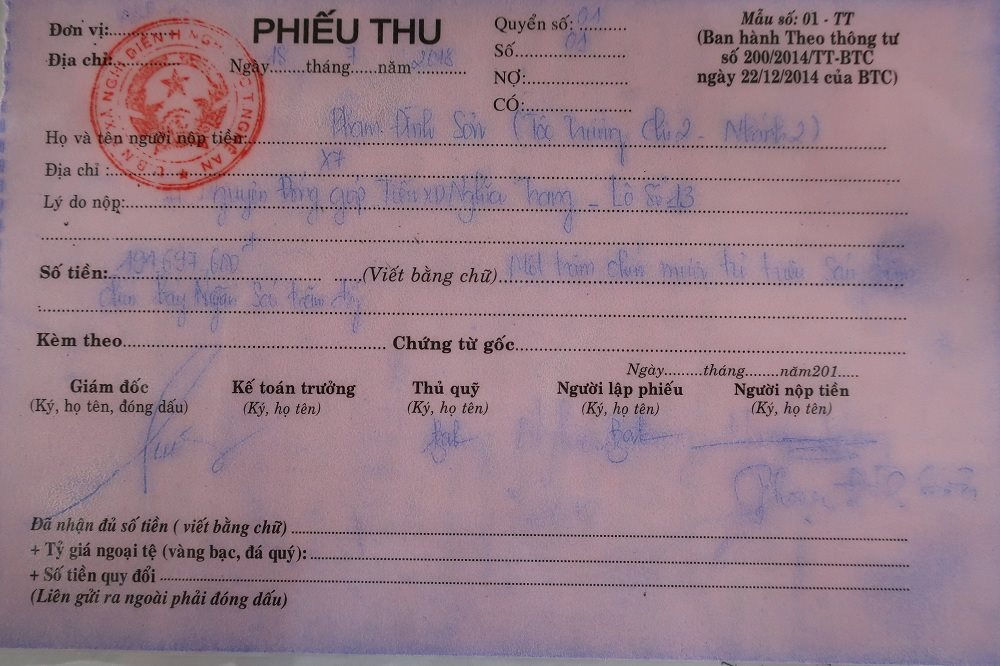 Đơn vị:
PHIẾU THU
Quyển số: 01
Mẫu số: 01 - TT
Địa chỉ:
Ngày 18 tháng 7 năm 2018
Số: 01
(Ban hành Theo thông tư
số 200/2014/TT-BTC
NỢ:
ngày 22/12/2014 của BTC)
CÓ:
Họ và tên người nộp tiền: Phạm Đình Sơn (Tộc trưởng chi 2 - Nhánh 2)
Địa chỉ : X7
Lý do nộp: quyên Đóng góp Tiền XD Nghĩa Trang - Lô Số 13
Số tiền: 194,697,600đ (Viết bằng chữ) Một trăm chín mươi tư triệu Sáu trăm
chín bảy Ngàn Sáu trăm đ
Kèm theo Chứng từ gốc
Ngày tháng năm201
Giám đốc Kế toán trưởng Thủ quỹ Người lập phiếu Người nộp tiền
(Ký, họ tên, đóng dấu) (Ký, họ tên) (Ký, họ tên) (Ký, họ tên) (Ký, họ tên)
Đã nhận đủ số tiền ( viết bằng chữ)
+ Tỷ giá ngoại tệ (vàng bạc, đá quý):
+ Số tiền quy đổi
(Liên gửi ra ngoài phải đóng dấu)